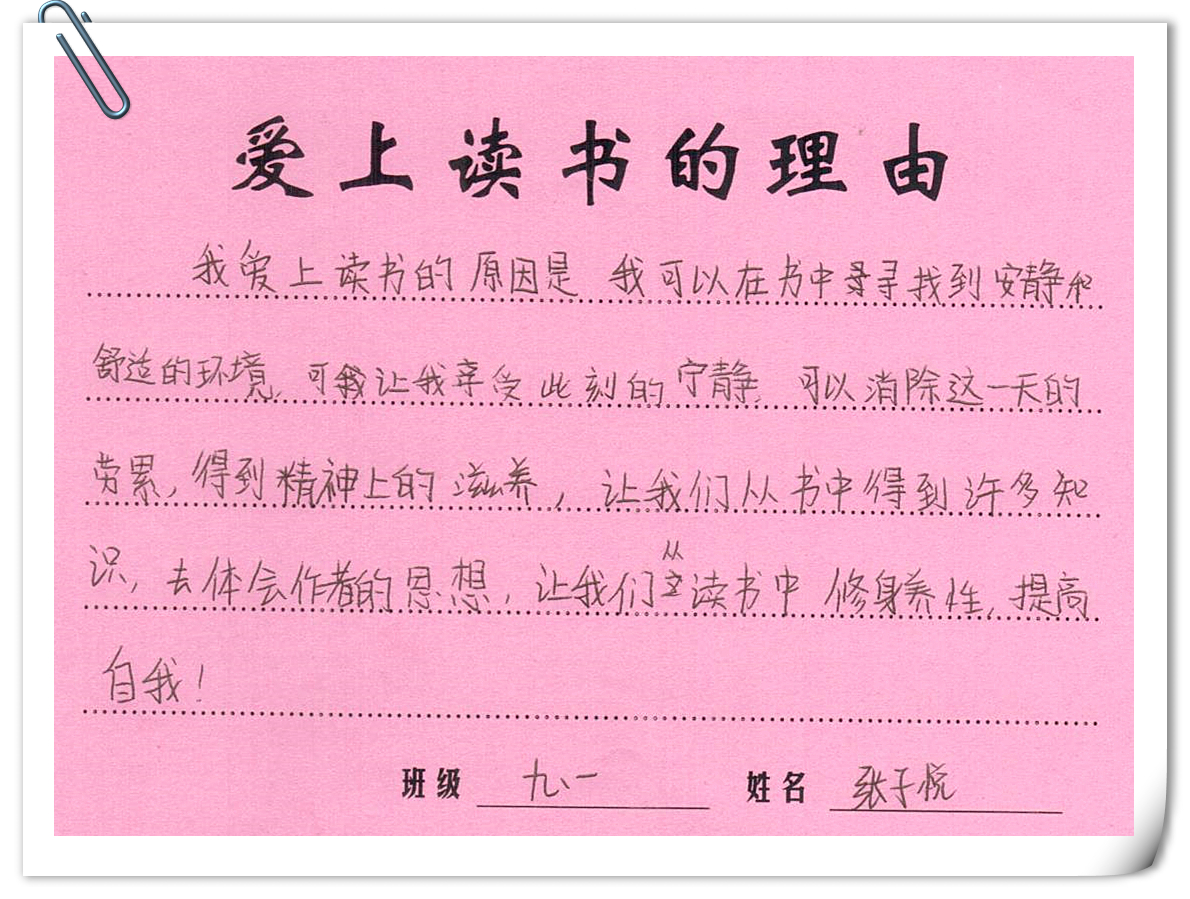 爱上读书的理由
我爱上读书的原因是 我可以在书中寻寻找到安静和
舒适的环境,可我让我享受此刻的宁静,可以消除这一天的
劳累,得到精神上的滋养,让我们从书中得到许多知
识,去体会作者的思想,让我们从读书中修身养性,提高
自我!
班级 九、一 姓名 张子悦